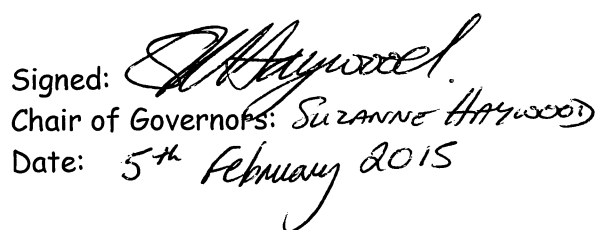 Signed: SHaywood.
Chair of Governors: SUZANNE HAYWOOD
Date: 5th February 2015